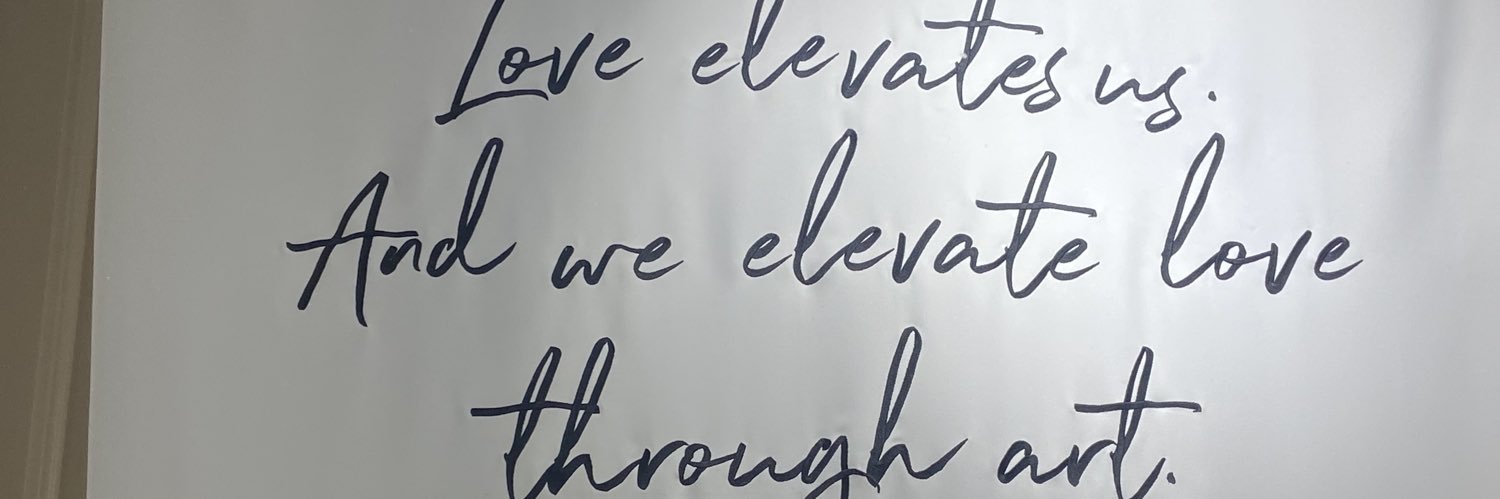 Love elevates us.
And we elevate love
through art.